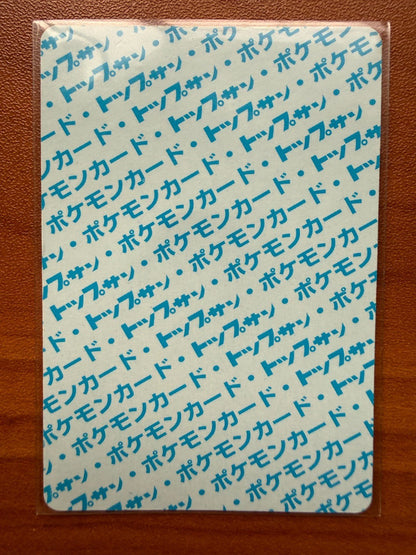 トップサン・ポケモン
トップサン・ポケモンカード・
カード・トップサン・ポケモンカード
ポケモンカード・トップサン・ポケモン
・ポケモンカード・トップサン・ポケ
トップサン・ポケモンカード・トップサン
トップサン・ポケモンカード・トップサン
・トップサン・ポケモンカード・
カード・トップサン・ポケモンカード
モンカード・トップサン・ポケモンカード
ポケモンカード・トップサン・ポケモン
・ポケモンカード・トップサン・
サン・ポケモンカード・トップサン
トップサン・ポケモンカード・ト
ポケモンカード・
ポケモンカード